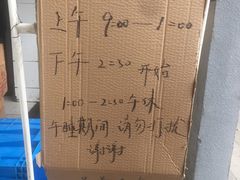 上午 9:00—1:00
下午 2:30 开始
1:00—2:30 午休
午睡期间 请勿打扰
谢谢